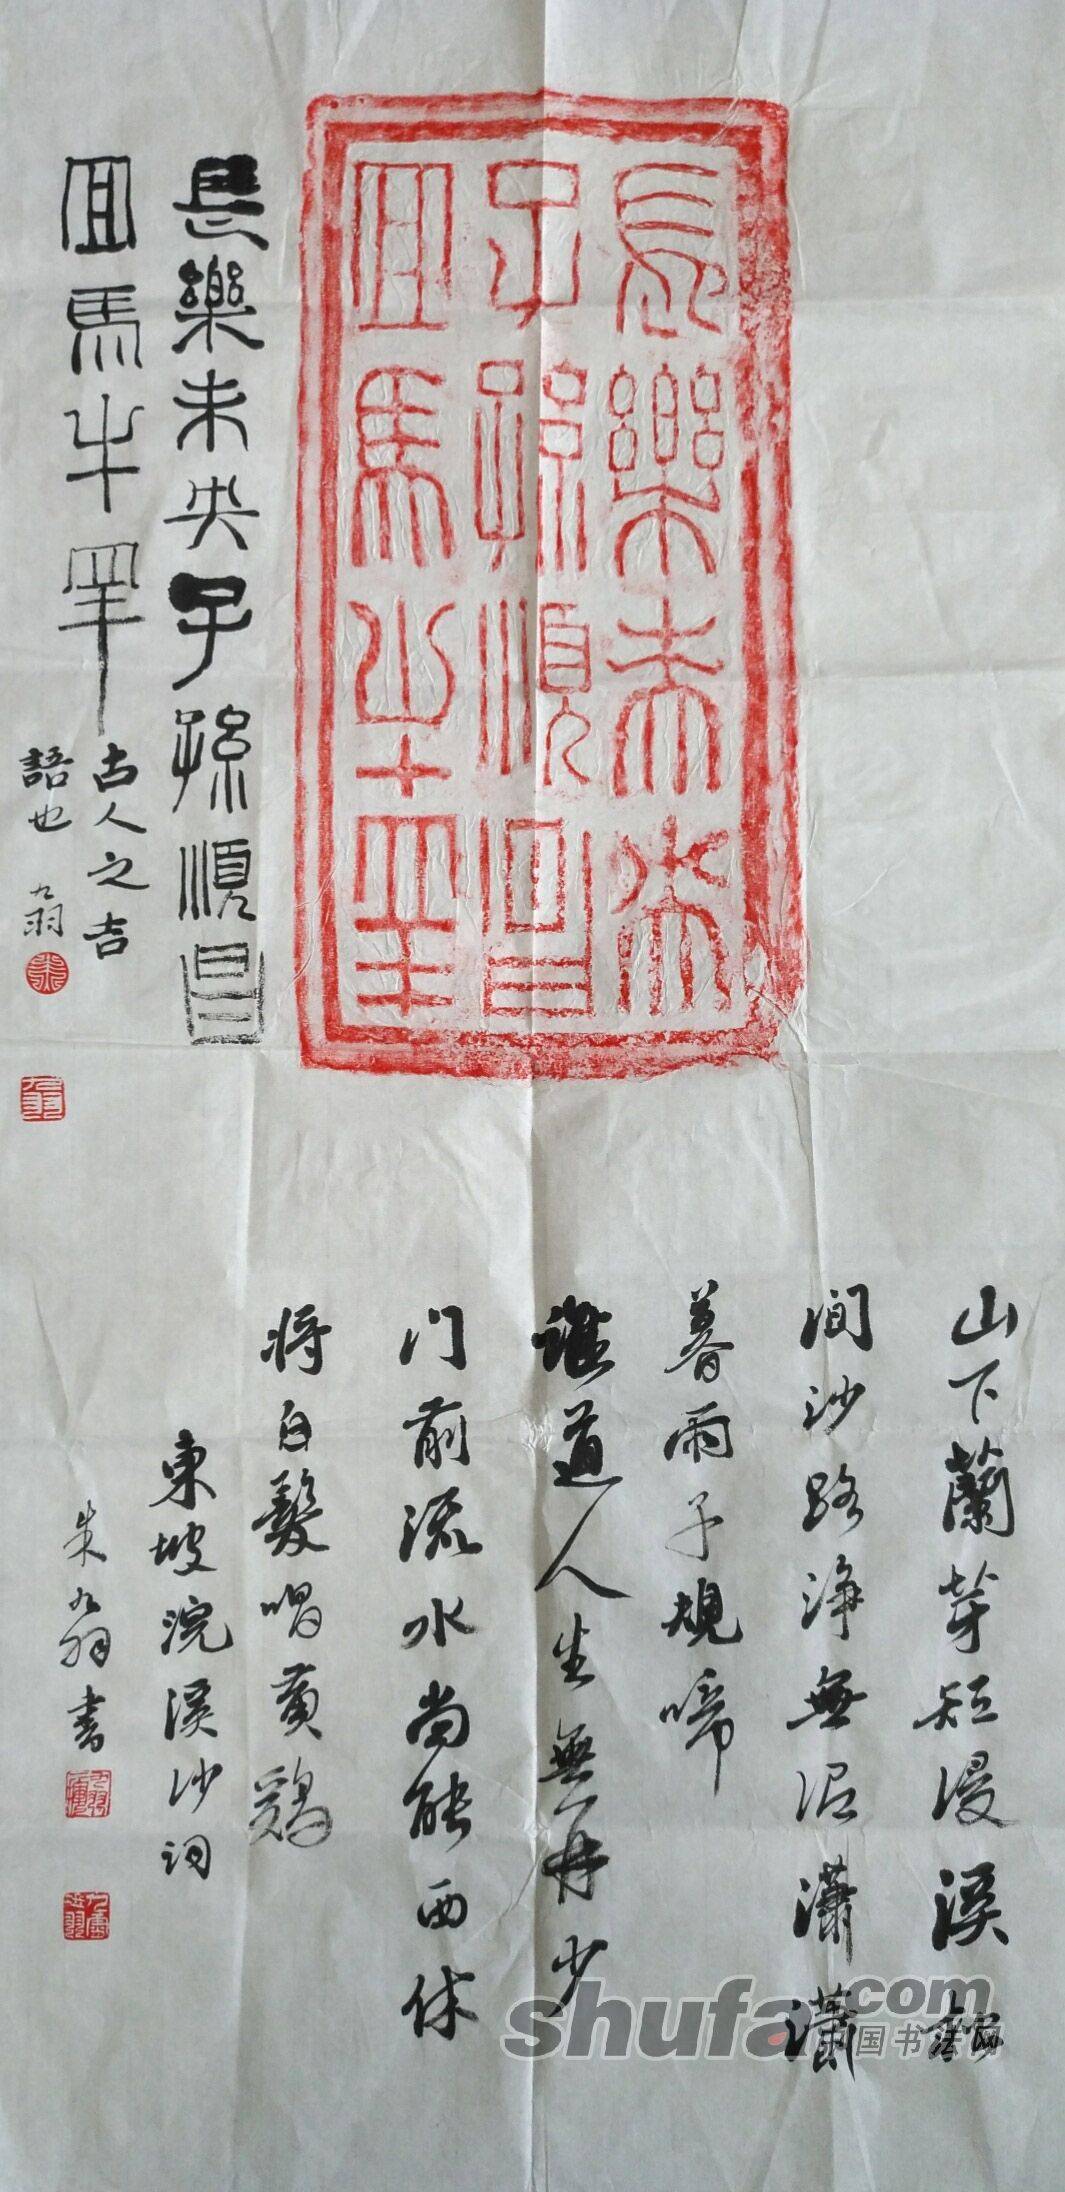 長樂未央
子孫順昌
宜馬牛羊
長樂未央子孫順昌
宜馬牛羊
古人之吉
語也 九翁
山下蘭芽短浸溪松
间沙路淨無泥瀟瀟
暮雨子規啼
谁道人生無再少
门前流水尚能西休
将白髮唱黄鷄
東坡浣溪沙词
朱九翁書
shufa.com
中国书法网